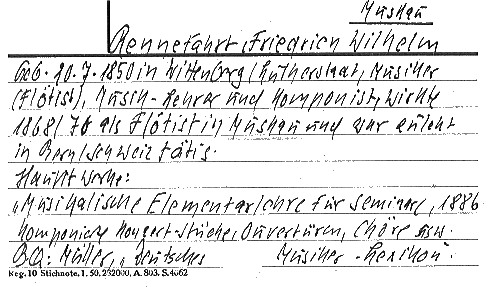 Muskau
Rennefahrt, Friedrich Wilhelm
Geb. 20.7.1850 in Wittenberg/Lutherstadt, Musiker
(Flötist), Musik-Lehrer und Komponist, wirkte
1868/70 als Flötist in Muskau und war zuletzt
in Bern/Schweiz tätig.
Hauptwerke:
"Musikalische Elementarlehre für Seminare, 1886
Komponierte Konzert-Stücke, Ouvertüren, Chöre usw.
BQ: Müller, "Deutsches Musiker-Lexikon".
Reg. 10 Stichnote. 1. 50. 232000, A. 803. S. 4662